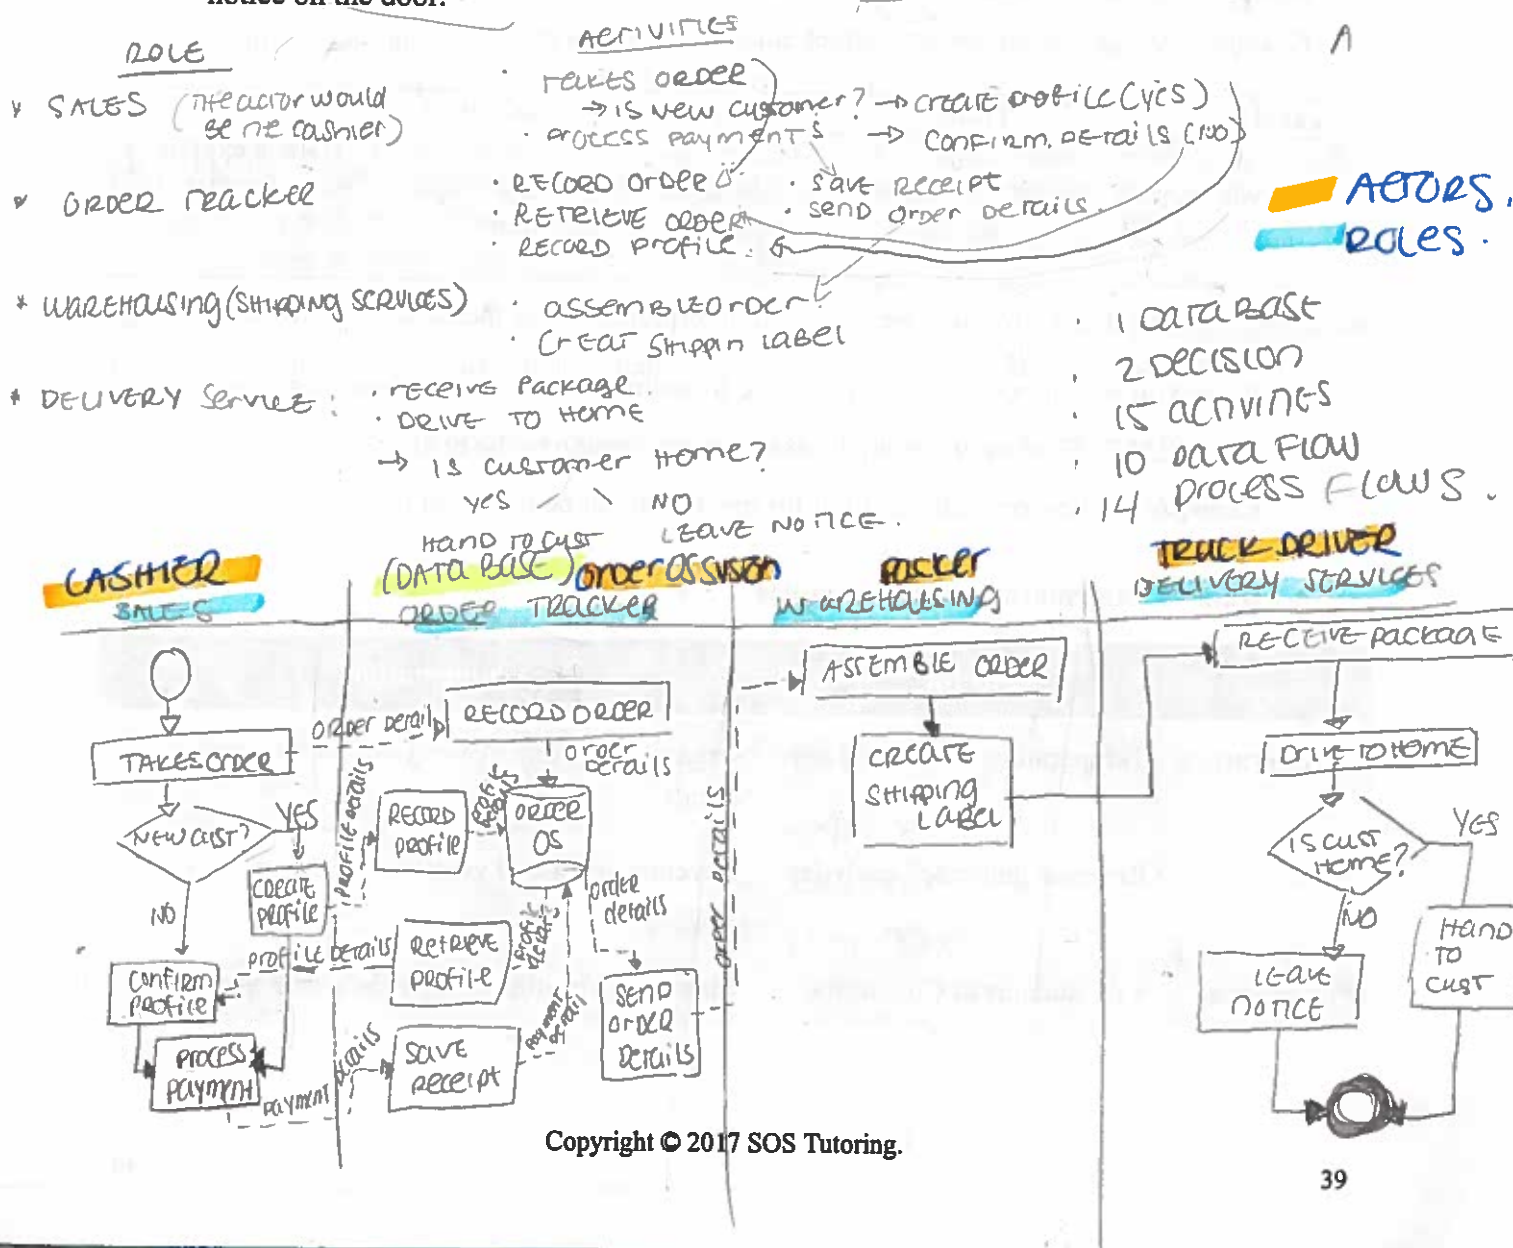 notice on the door.
ROLE
ACTIVITIES
A
* SALES (THE actor would
be the cashier)
· TAKES ORDER
→ IS NEW customer? → CREATE PROFILE (YES)
· PROCESS PAYMENTS → CONFIRM. DETAILS (NO)
* ORDER TRACKER
· RECORD ORDER · SAVE RECEIPT
· RETRIEVE ORDER · SEND Order DETAILS
· RECORD PROFILE.
ACTORS.
ROLES.
* WAREHOUSING (SHIPPING SERVICES)
· ASSEMBLE ORDER
· CrEaT SHIPPIn LABEL
* DELIVERY Service:
· receive Package.
· DRIVE TO Home
→ IS customer Home?
yes NO
HAND TO CUST LEAVE NOTICE.
· 1 DATABASE
· 2 DECISION
· 15 ACTIVITIES
· 10 DATA FLOW
· 14 PROCESS FLOWS.
CASHIER
SALES
(DATA BASE) Order
ORDER TRACKER
Packer
WAREHOUSING
TRUCK DRIVER
DELIVERY SERVICES
TAKES ORDER
NEW CUST?
YES
NO
CREATE
PROFILE
CONFIRM
PROFILE
PROCESS
PAYMENT
Order Details
PROFILE Details
PROFILE DETAILS
PAYMENT DETAILS
RECORD ORDER
order
DETAILS
RECORD
PROFILE
ORDER
RETRIEVE
PROFILE
order
details
SAVE
RECEIPT
payment
SEND
ORDER
DETAILS
ORDER DETAILS
ASSEMBLE ORDER
CREATE
SHIPPING
LABEL
RECEIVE PACKAGE
DRIVE TO HOME
IS CUST
HOME?
YES
NO
LEAVE
NOTICE
HAND
TO
CUST
Copyright © 2017 SOS Tutoring.
39